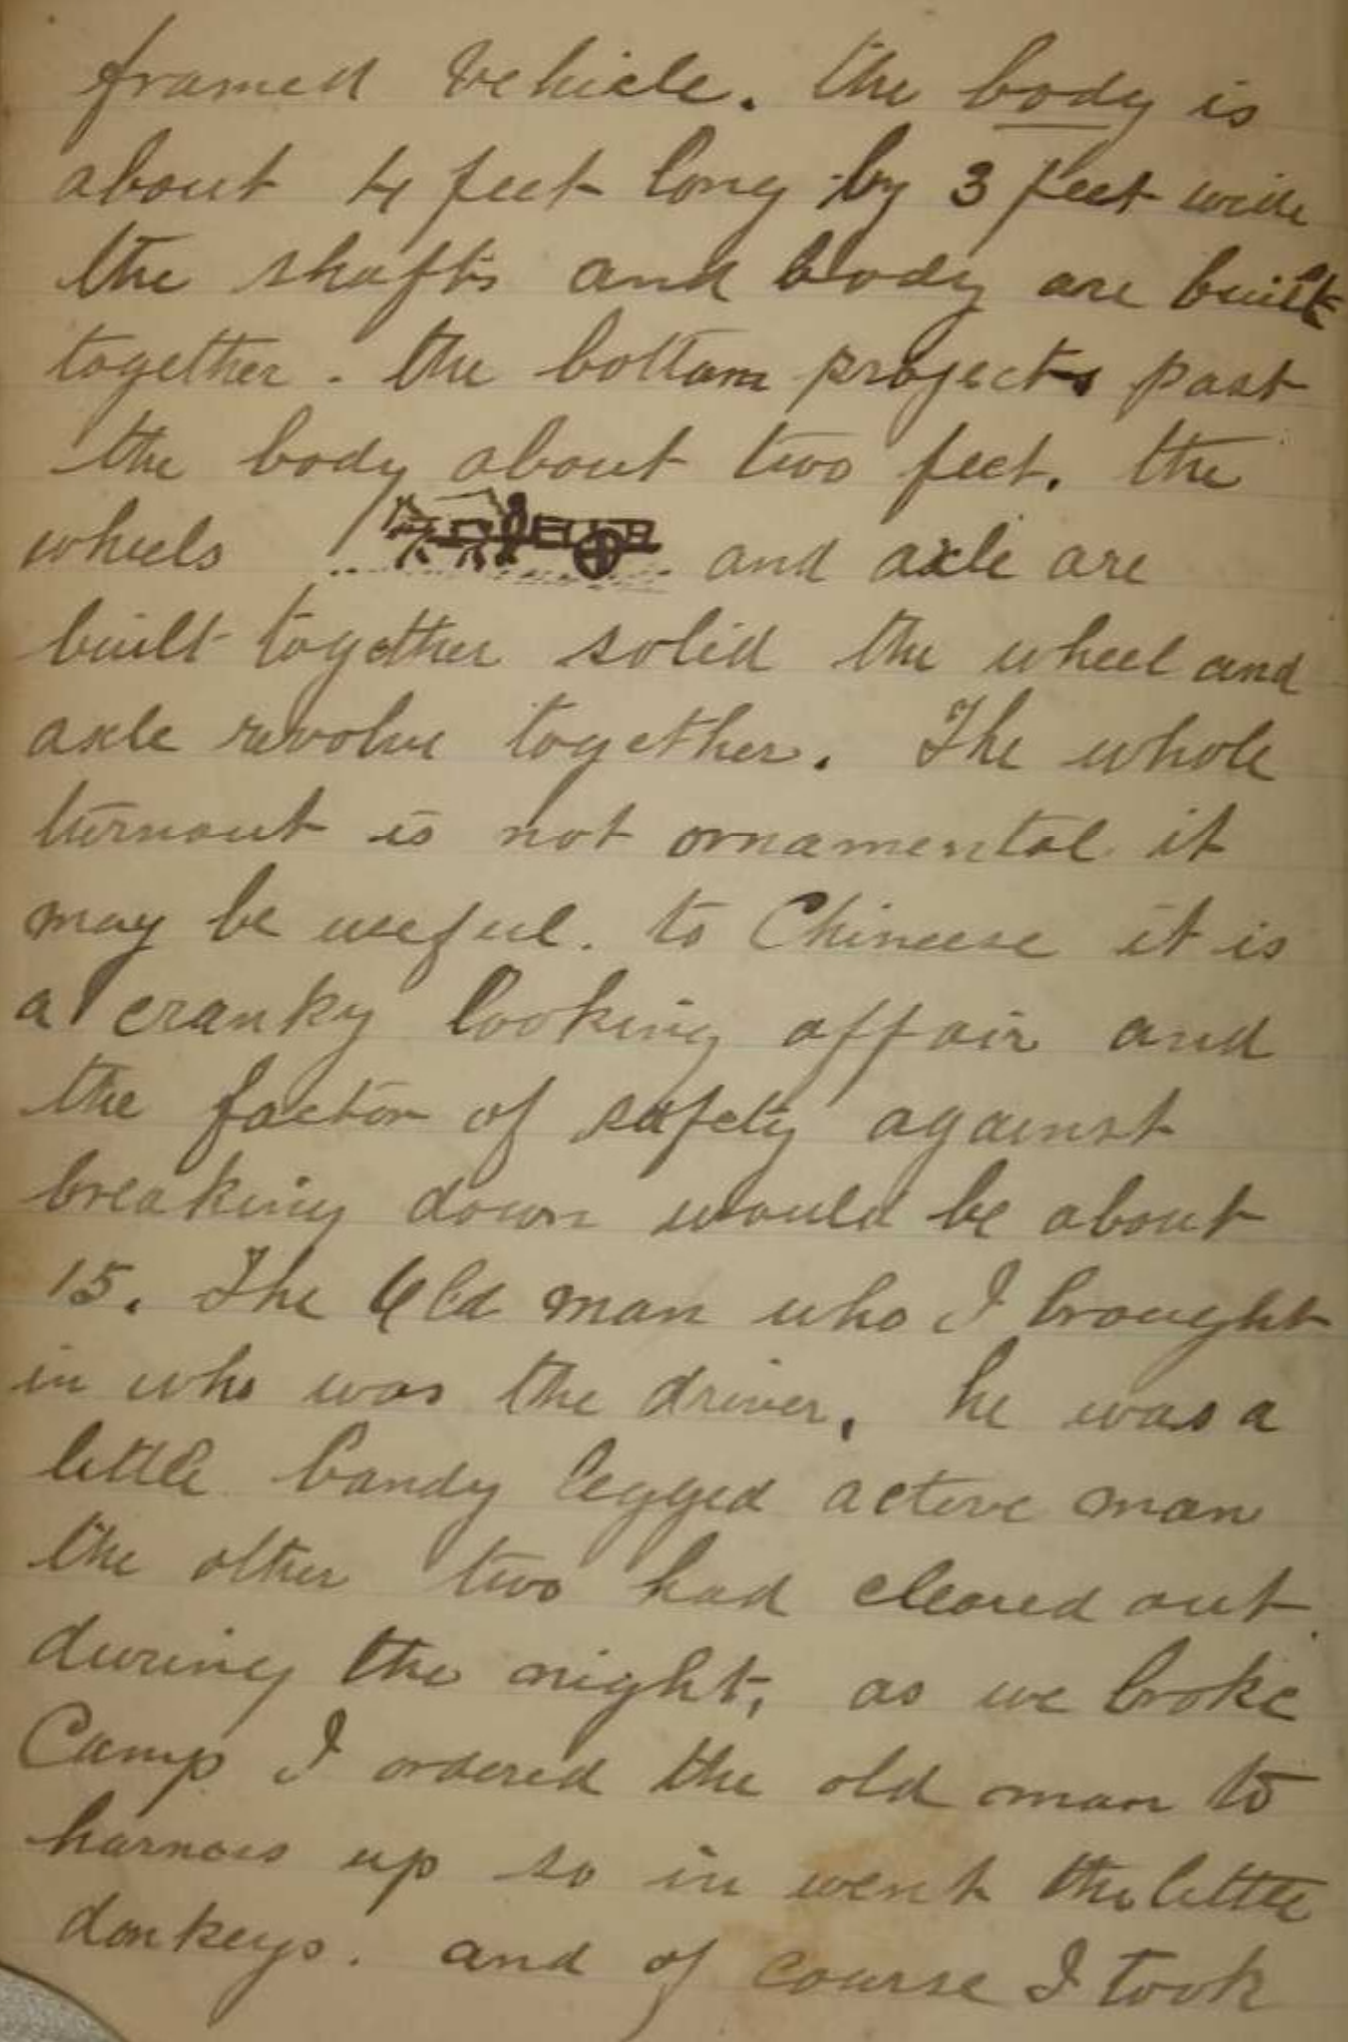 framed vehicle. the body is
about 4 feet long by 3 feet wide
the shafts and body are built
together. the bottom projects past
the body about two feet. the
wheels and axle are
built together solid the wheel and
axle revolve together. The whole
turnout is not ornamental it
may be useful. to Chineese it is
a cranky looking affair and
the factor of safety against
breaking down would be about
15. The Old man who I brought
in who was the driver, he was a
little bandy legged active man
the other two had cleared out
during the night, as we broke
Camp I ordered the old man to
harness up so in went the little
donkeys. and of course I took